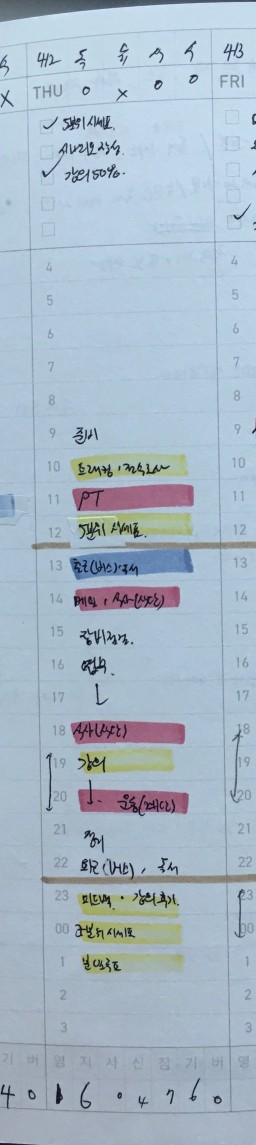 4/2 독 4/3
X THU o x o o FRI
5분위 시세표.
시나리오 작성.
강의 50%.
4 4
5 5
6 6
7 7
8 8
9 준비 9
10 10
11 PT 11
12 5분위 시세표 12
13 출근(버스)·독서 13
14 메일, 식사(식단) 14
15 장비점검. 15
16 업무. 16
17 17
18 식사(식단) 18
19 강의 19
20 운동(계단) 20
21 정리 21
22 퇴근(버스), 독서 22
23 피드백 · 강의후기. 23
00 5분위 시세표 00
1 1
2 2
3 3
기 버 영 지 사 신 참 기 버 영
4 0 1 6 0 4 7 6 0